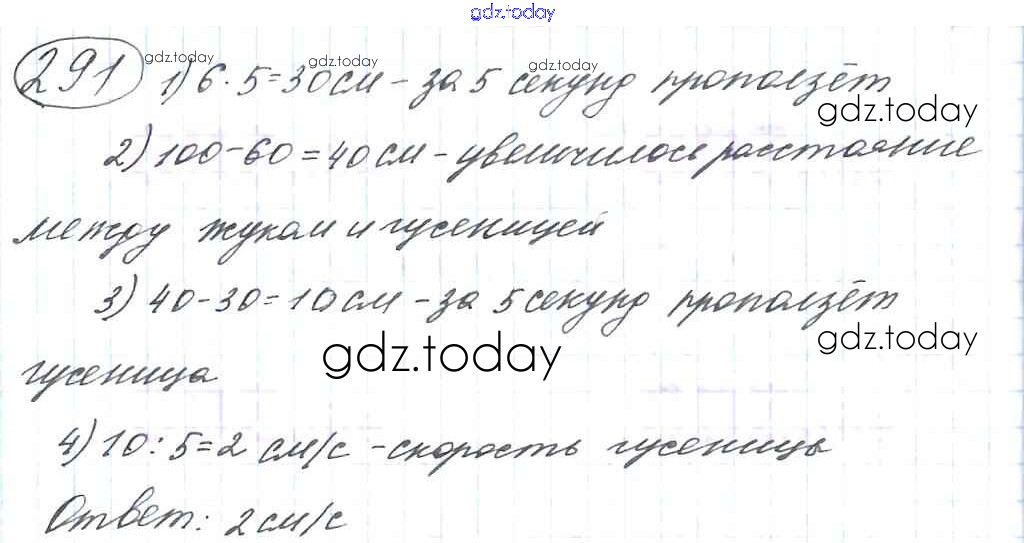 gdz.today
291 1) 6·5=30 см – за 5 секунд проползёт
gdz.today gdz.today gdz.today
gdz.today
2) 100-60=40 см – увеличилось расстояние
между жуком и гусеницей
3) 40-30=10 см – за 5 секунд проползёт
gdz.today gdz.today
гусеница
4) 10:5=2 см/с – скорость гусеницы
Ответ: 2 см/с